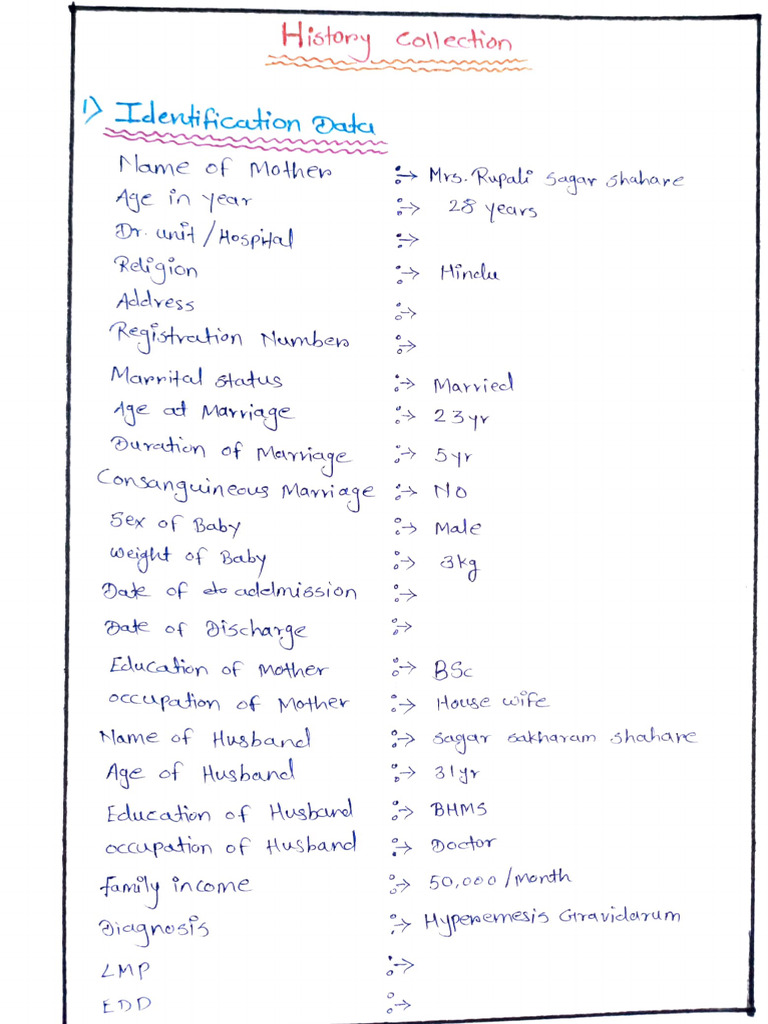 History Collection
1) Identification Data
Name of Mother :→ Mrs. Rupali Sagar Shahare
Age in year :→ 28 years
Dr. unit / Hospital :→
Religion :→ Hindu
Address :→
Registration Number :→
Marrital status :→ Married
Age at Marriage :→ 23 yr
Duration of Marriage :→ 5 yr
Consanguineous Marriage :→ No
Sex of Baby :→ Male
Weight of Baby :→ 3 kg
Date of addmission :→
Date of Discharge :→
Education of Mother :→ BSc
Occupation of Mother :→ House wife
Name of Husband :→ Sagar Sakharam Shahare
Age of Husband :→ 31 yr
Education of Husband :→ BHMS
Occupation of Husband :→ Doctor
Family income :→ 50,000 / month
Diagnosis :→ Hyperemesis Gravidarum
LMP :→
EDD :→